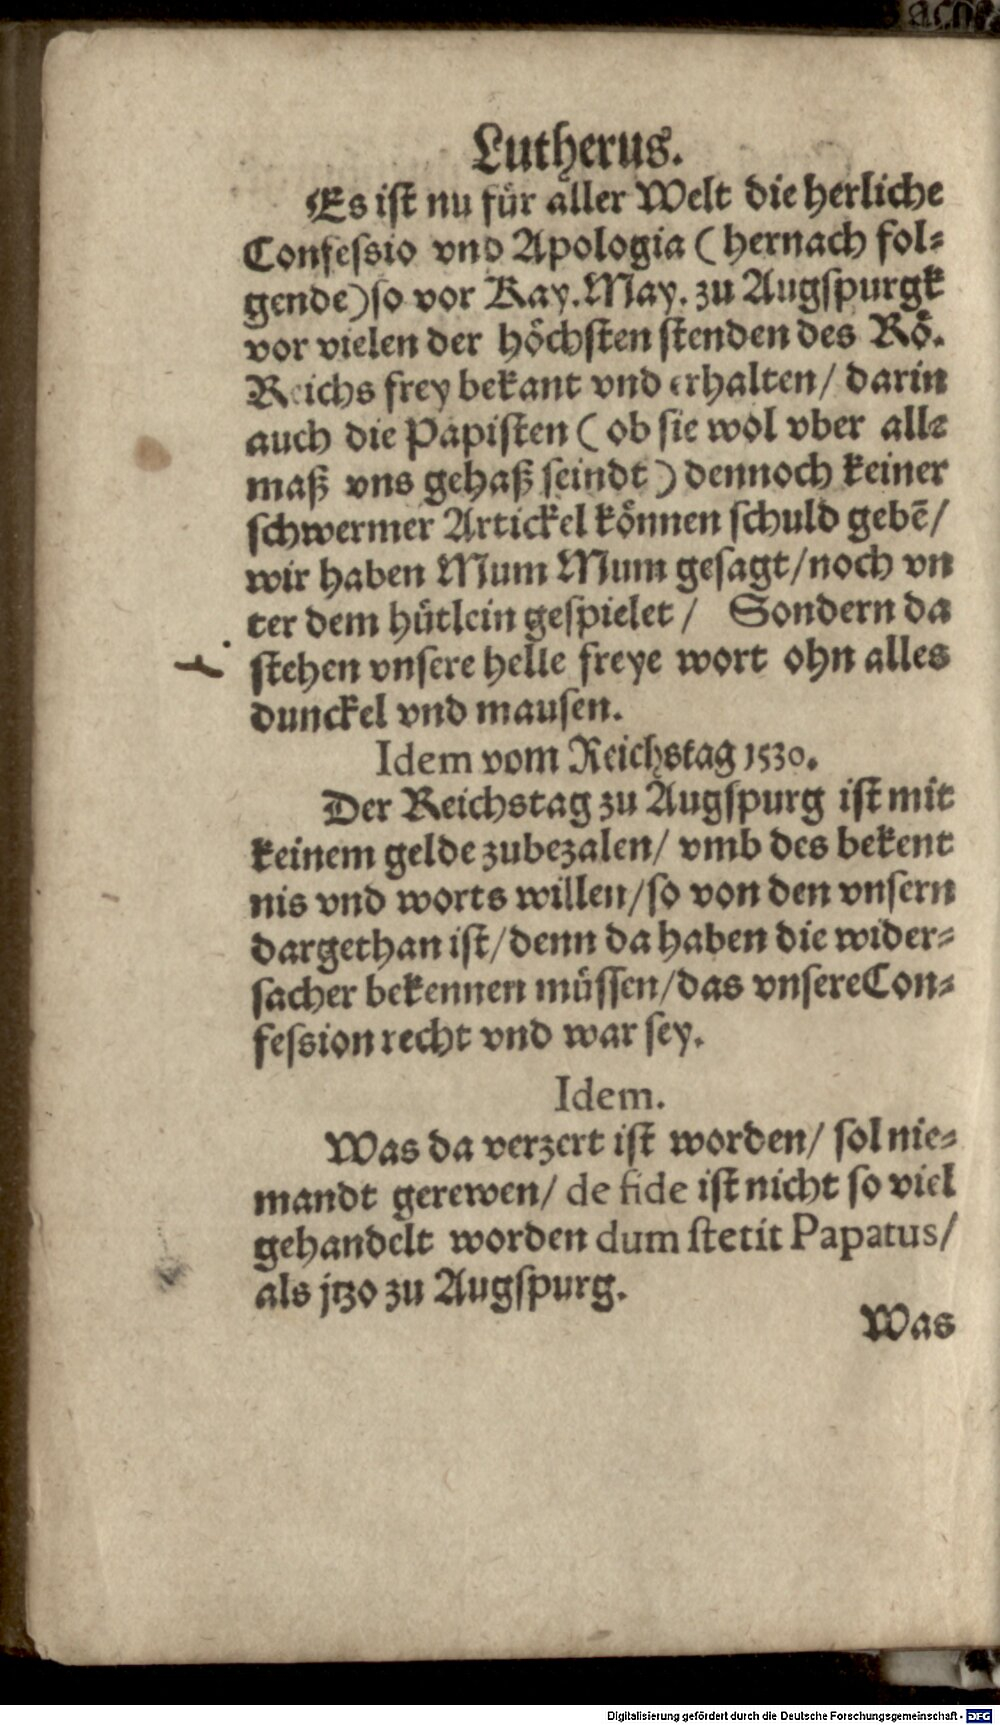 Lutherus.
Es ist nu für aller Welt die herliche
Confessio vnd Apologia (hernach fol⸗
gende) so vor Kay. May. zu Augspurgk
vor vielen der höchsten stenden des Rö.
Reichs frey bekant vnd erhalten / darin
auch die Papisten (ob sie wol vber all⸗
maß vns gehaß seindt) dennoch keiner
schwermer Artickel können schuld gebē /
wir haben Mum Mum gesagt / noch vn
ter dem hütlein gespielet / Sondern da
stehen vnsere helle freye wort ohn alles
dunckel vnd mausen.
Idem vom Reichstag 1530.
Der Reichstag zu Augspurg ist mit
keinem gelde zubezalen / vmb des bekent
nis vnd worts willen / so von den vnsern
dargethan ist / denn da haben die wider⸗
sacher bekennen müssen / das vnsere Con⸗
fession recht vnd war sey.
Idem.
Was da verzert ist worden / sol nie⸗
mandt gerewen / de fide ist nicht so viel
gehandelt worden dum stetit Papatus /
als jtzo zu Augspurg.
Was
Digitalisierung gefördert durch die Deutsche Forschungsgemeinschaft - DFG